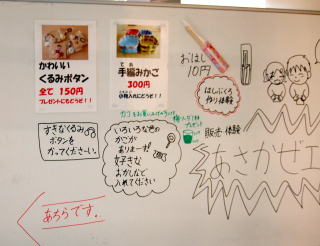 かわいい
くるみボタン
全て 150円
プレゼントにもどうぞ!!
すきなくるみ
ボタンを
かってください。
手編みかご
300円
小物入れにどうぞ!!
いろいろな色の
かごが
ありまーす!
好きな
おかしなど
入れてください
おはし
10円
はしぶくろ
作り体験
プレゼント
販売・体験
あさかぜエ
あちらです。